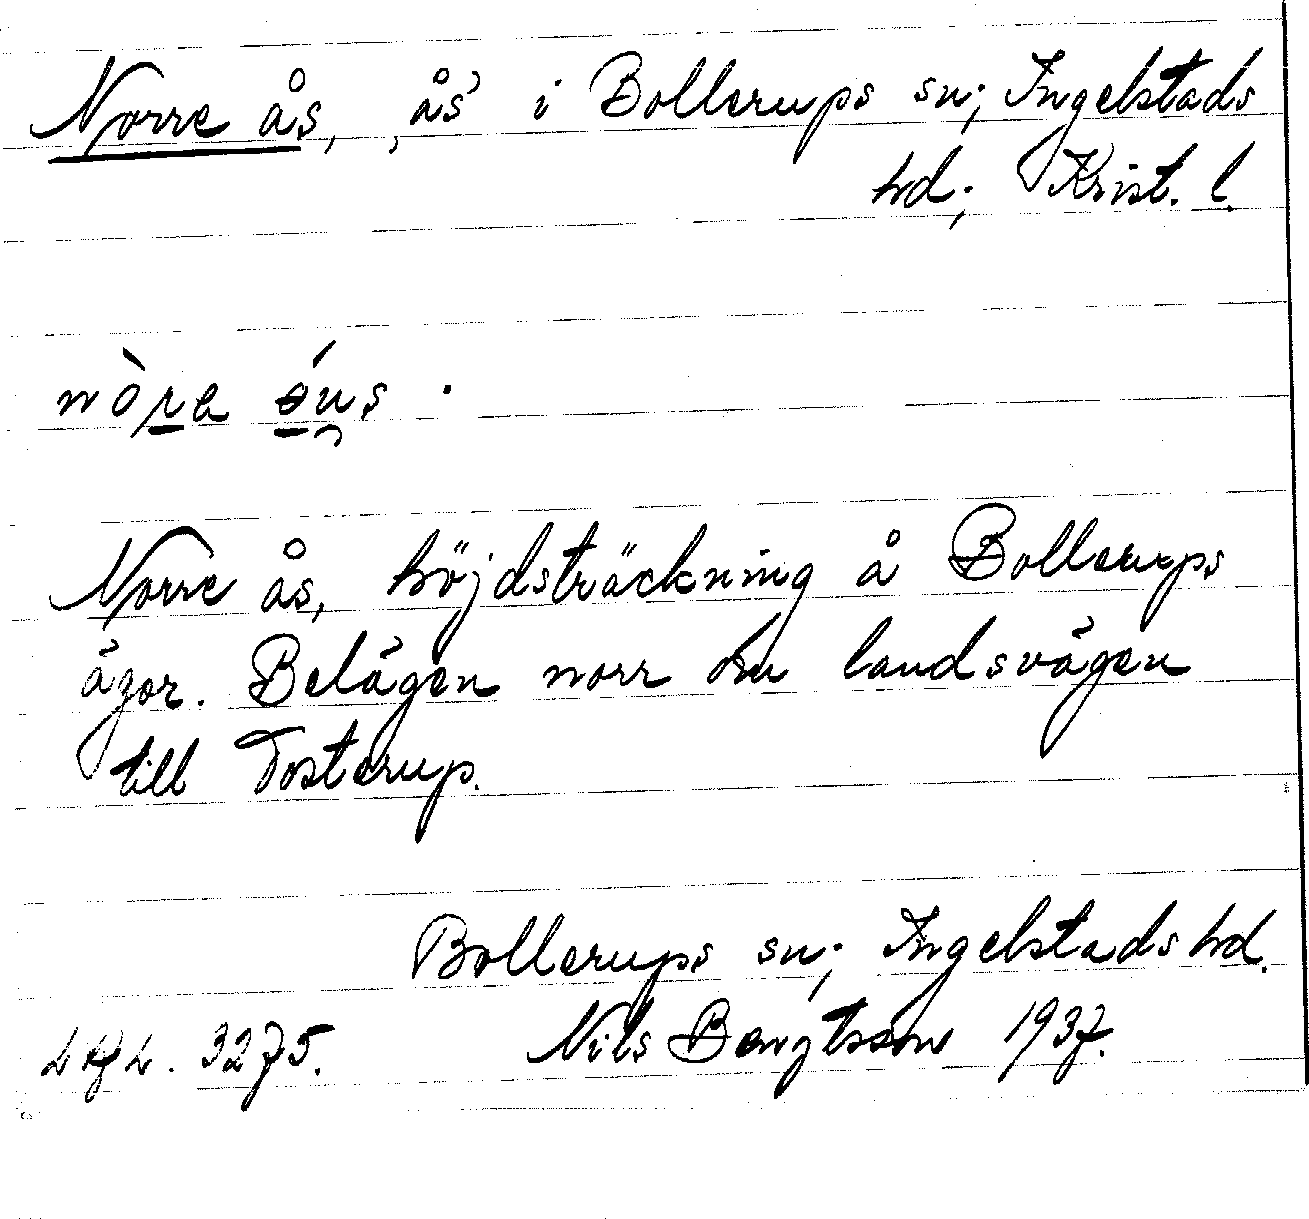 Norre ås, ‚ås’ i Bollerups sn; Ingelstads
hd; Krist. l.
nòra áus .
Norre ås, höjdsträckning å Bollerups
ägor. Belägen norr om landsvägen
till Tosterup.
Bollerups sn; Ingelstads hd.
3275. Nils Bengtsson 1937.